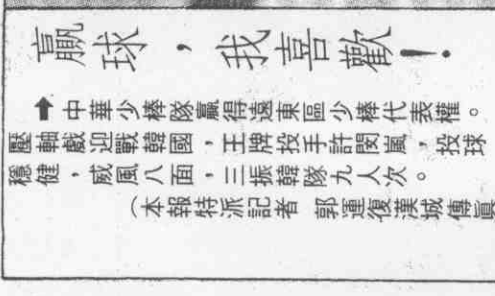 贏球，我喜歡！
➡中華少棒隊贏得遠東區少棒代表權。
壓軸戲迎戰韓國，王牌投手許閔嵐，投球
穩健，威風八面，三振韓隊九人次。
（本報特派記者 郭運復漢城傳眞